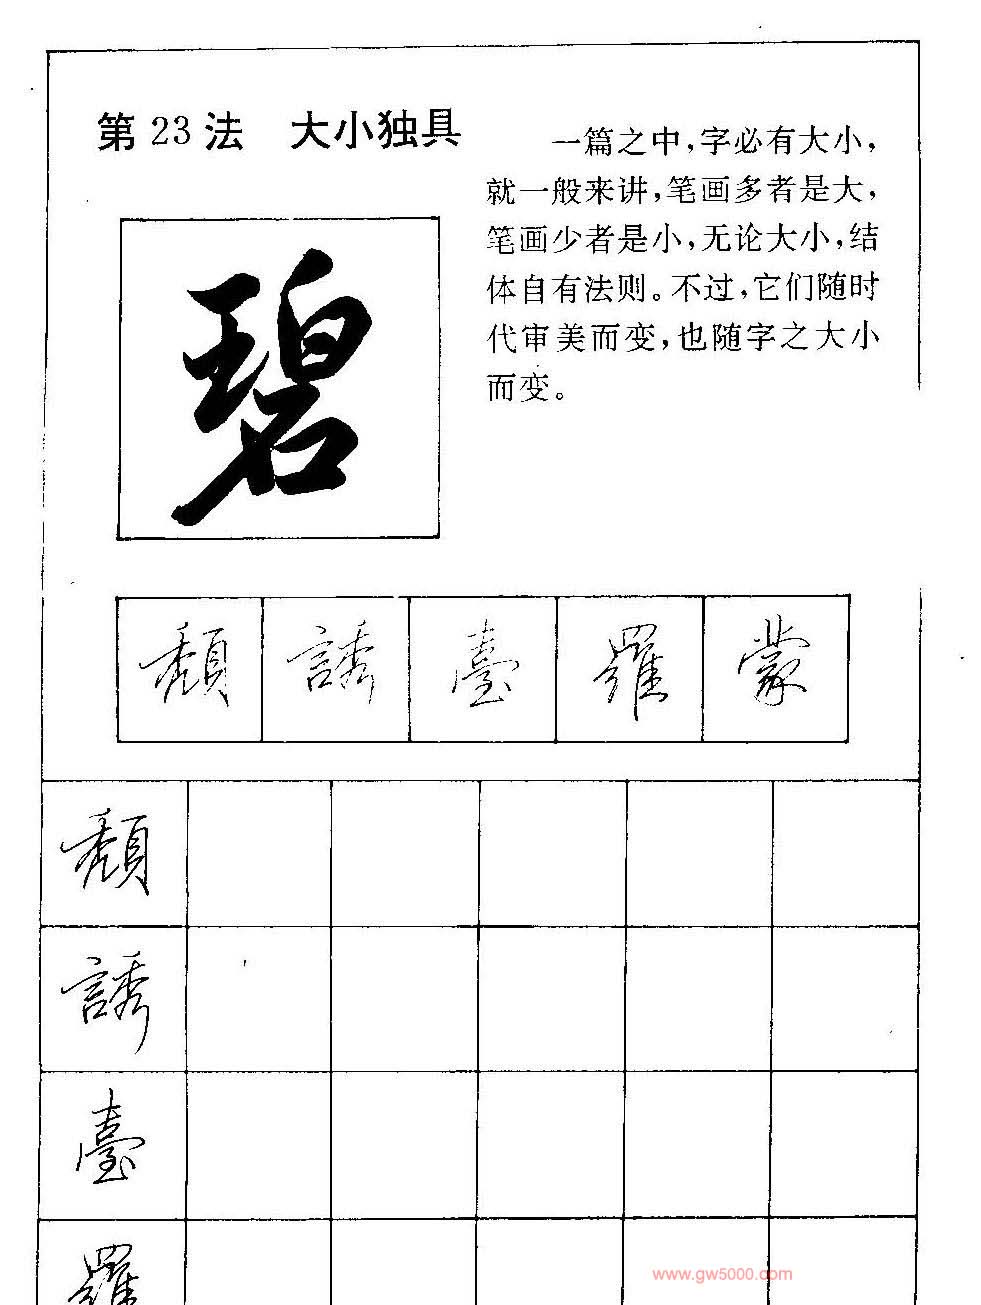 第23法 大小独具
一篇之中，字必有大小，
就一般来讲，笔画多者是大，
笔画少者是小，无论大小，结
体自有法则。不过，它们随时
代审美而变，也随字之大小
而变。
碧
頹 誘 臺 羅 蒙
頹
誘
臺
羅
www.gw5000.com